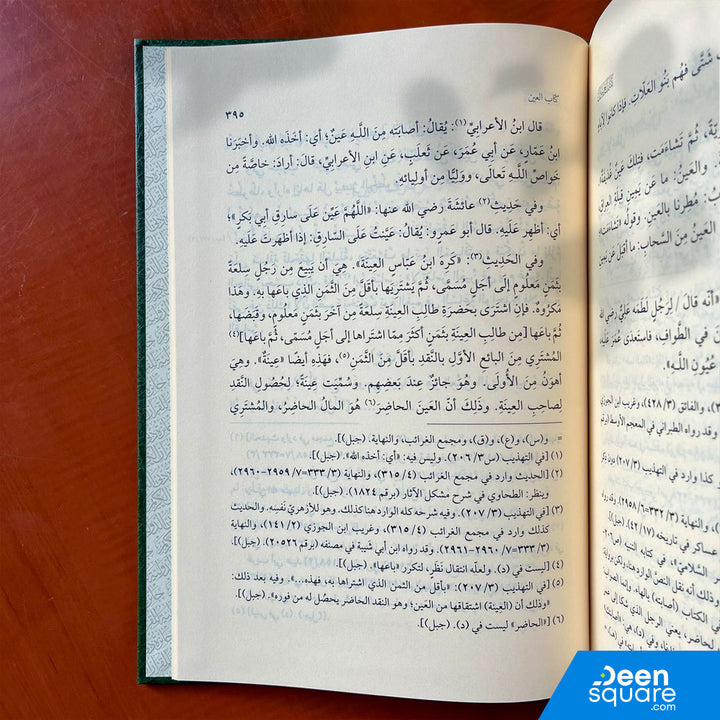 كتاب العين
٣٩٥
قال ابنُ الأعرابيِّ(١): يُقالُ: أصابَته مِنَ اللَّهِ عَيْنٌ؛ أي: أخذَه الله. وأخبَرَنا
ابنُ عمّارٍ، عَن أبي عُمَرَ، عَن ثَعلَبٍ، عَنِ ابنِ الأعرابيِّ، قالَ: أرادَ: خاصَّةً مِن
خَواصِّ اللَّهِ تَعالَى، ووَلِيًّا مِن أوليائِه.
وفي حَدِيثِ(٢) عائشَةَ رضي الله عنها: «اللَّهُمَّ عَيِّنْ عَلَى سارِقِ أبي بَكرٍ»؛
أي: أظهِر عَلَيه. قال أبو عمرو: يُقالُ: عَيَّنتُ عَلَى السّارِقِ: إذا أظهَرتَ عَلَيه.
وفي الحَدِيثِ(٣): «كَرِهَ ابنُ عبّاسٍ العِينَةَ». هِيَ أن يَبِيعَ مِن رَجُلٍ سِلعَةً
بِثَمَنٍ مَعلُومٍ إلى أجَلٍ مُسَمًّى، ثُمَّ يَشتَرِيَها بأقَلَّ مِنَ الثَّمَنِ الذي باعَها بِهِ. وهَذا
مَكرُوهٌ. فإن اشتَرَى بحَضرَةِ طالِبِ العِينَةِ سِلعَةً مِن آخَرَ بثَمَنٍ مَعلُومٍ، وقَبَضَها،
ثُمَّ باعَها [مِن طالِبِ العِينَةِ بثَمَنٍ أكثَرَ مِمّا اشتَراها إلى أجَلٍ مُسَمًّى، ثُمَّ باعَها](٤)
المُشتَرِي مِنَ البائعِ الأوَّلِ بالنَّقدِ بأقَلَّ مِنَ الثَّمَنِ(٥)، فهَذِه أيضًا «عِينَةٌ». وهِيَ
أهوَنُ مِنَ الأُولَى. وهُوَ جائزٌ عندَ بَعضِهِم. وسُمِّيَت عِينَةً؛ لِحُصُولِ النَّقدِ
لِصاحِبِ العِينَةِ. وذَلكَ أنّ العَينَ الحاضِرَ(٦) هُوَ المالُ الحاضِرُ، والمُشتَرِي
= و(س)، و(ع)، و(ق)، ومجمع الغرائب، والنهاية. (جبل)].
(١) [في التهذيب (س٢٠٦/٣). وليس فيه: «أي: أخذه الله». (جبل)].
(٢) [الحديث وارد في مجمع الغرائب (٣١٥/٤)، والنهاية (٣٣٣/٣=٧/٢٩٥٩-٢٩٦٠)،
وينظر: الطحاوي في شرح مشكل الآثار (برقم ١٨٢٤). (جبل)].
(٣) [في التهذيب (٢٠٧/٣). وفيه شرحه كله الوارد هنا كذلك. وهو للأزهريّ نَفسِه. والحديث
كذلك وارد في مجمع الغرائب (٣١٥/٤)، وغريب ابن الجوزي (١٤١/٢)، والنهاية
(٣٣٣/٣=٧/٢٩٦٠-٢٩٦١). وقد رواه ابن أبي شيبة في مصنفه (برقم ٢٠٥٢٦). (جبل)].
(٤) [ليست في (د). ولعلّه انتقال نَظَرٍ، لتكرر «باعها». (جبل)].
(٥) [في التهذيب (٢٠٧/٣): «بأقلّ من الثمن الذي اشتراها به، فهذه...». وفيه بعد ذلك:
«وذلك أن (العينة) اشتقاقها من العَين؛ وهو النقد الحاضر يحصُل له من فوره». (جبل)].
(٦) [«الحاضر» ليست في (د). (جبل)].
شَتَّى فَهُم بَنُو العَلّاتِ. فإذا كانُوا
ثُمَّ تَشاءَمَت، فتِلكَ عَينٌ غُدَيقَةٌ
والعَينُ: ما عَن يَمِينِ قِبلَةِ العِراقِ
مُطِرنا بالعَينِ. وقولُه
العَينُ مِنَ السَّحابِ: ما أقبَلَ عَن يَمِينِ
أنّه قالَ / لِرَجُلٍ لَطَمَه عَلِيٌّ رضي الله
في الطَّوافِ، فاستَعدَى عُمَرَ عَلَيه
عُيُونِ اللَّهِ».
والفائق (٤٢٨/٣)، وغريب ابن الجوزي
وقد رواه الطبراني في المعجم الأوسط (برقم
Deen
square
.com